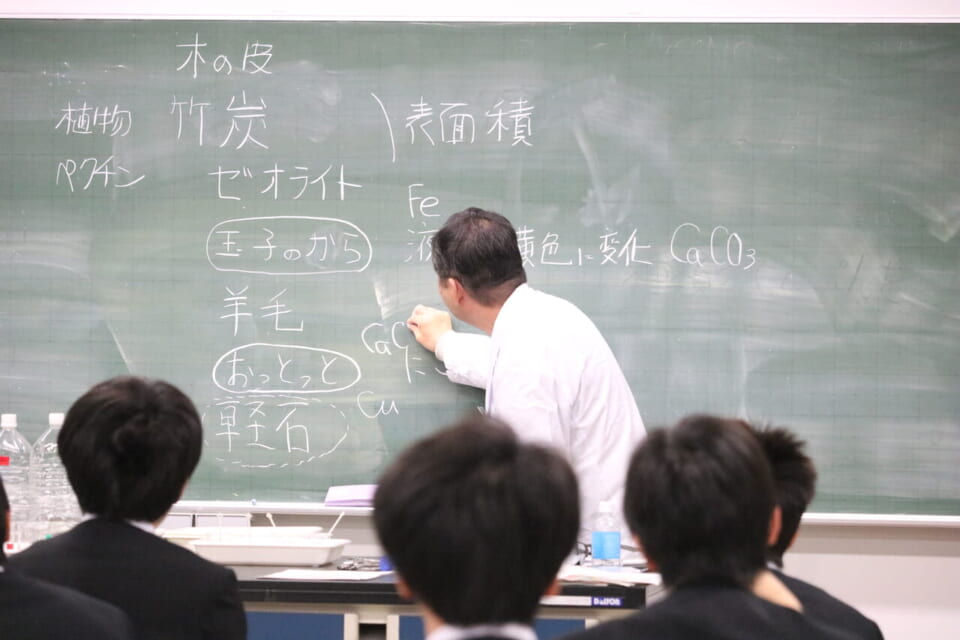 木の皮
植物
ペクチン
竹炭
表面積
ゼオライト
玉子のから
羊毛
おっとっと
軽石
Fe
液 黄色に変化 CaCO3
CaC
に
Cu
DALTON